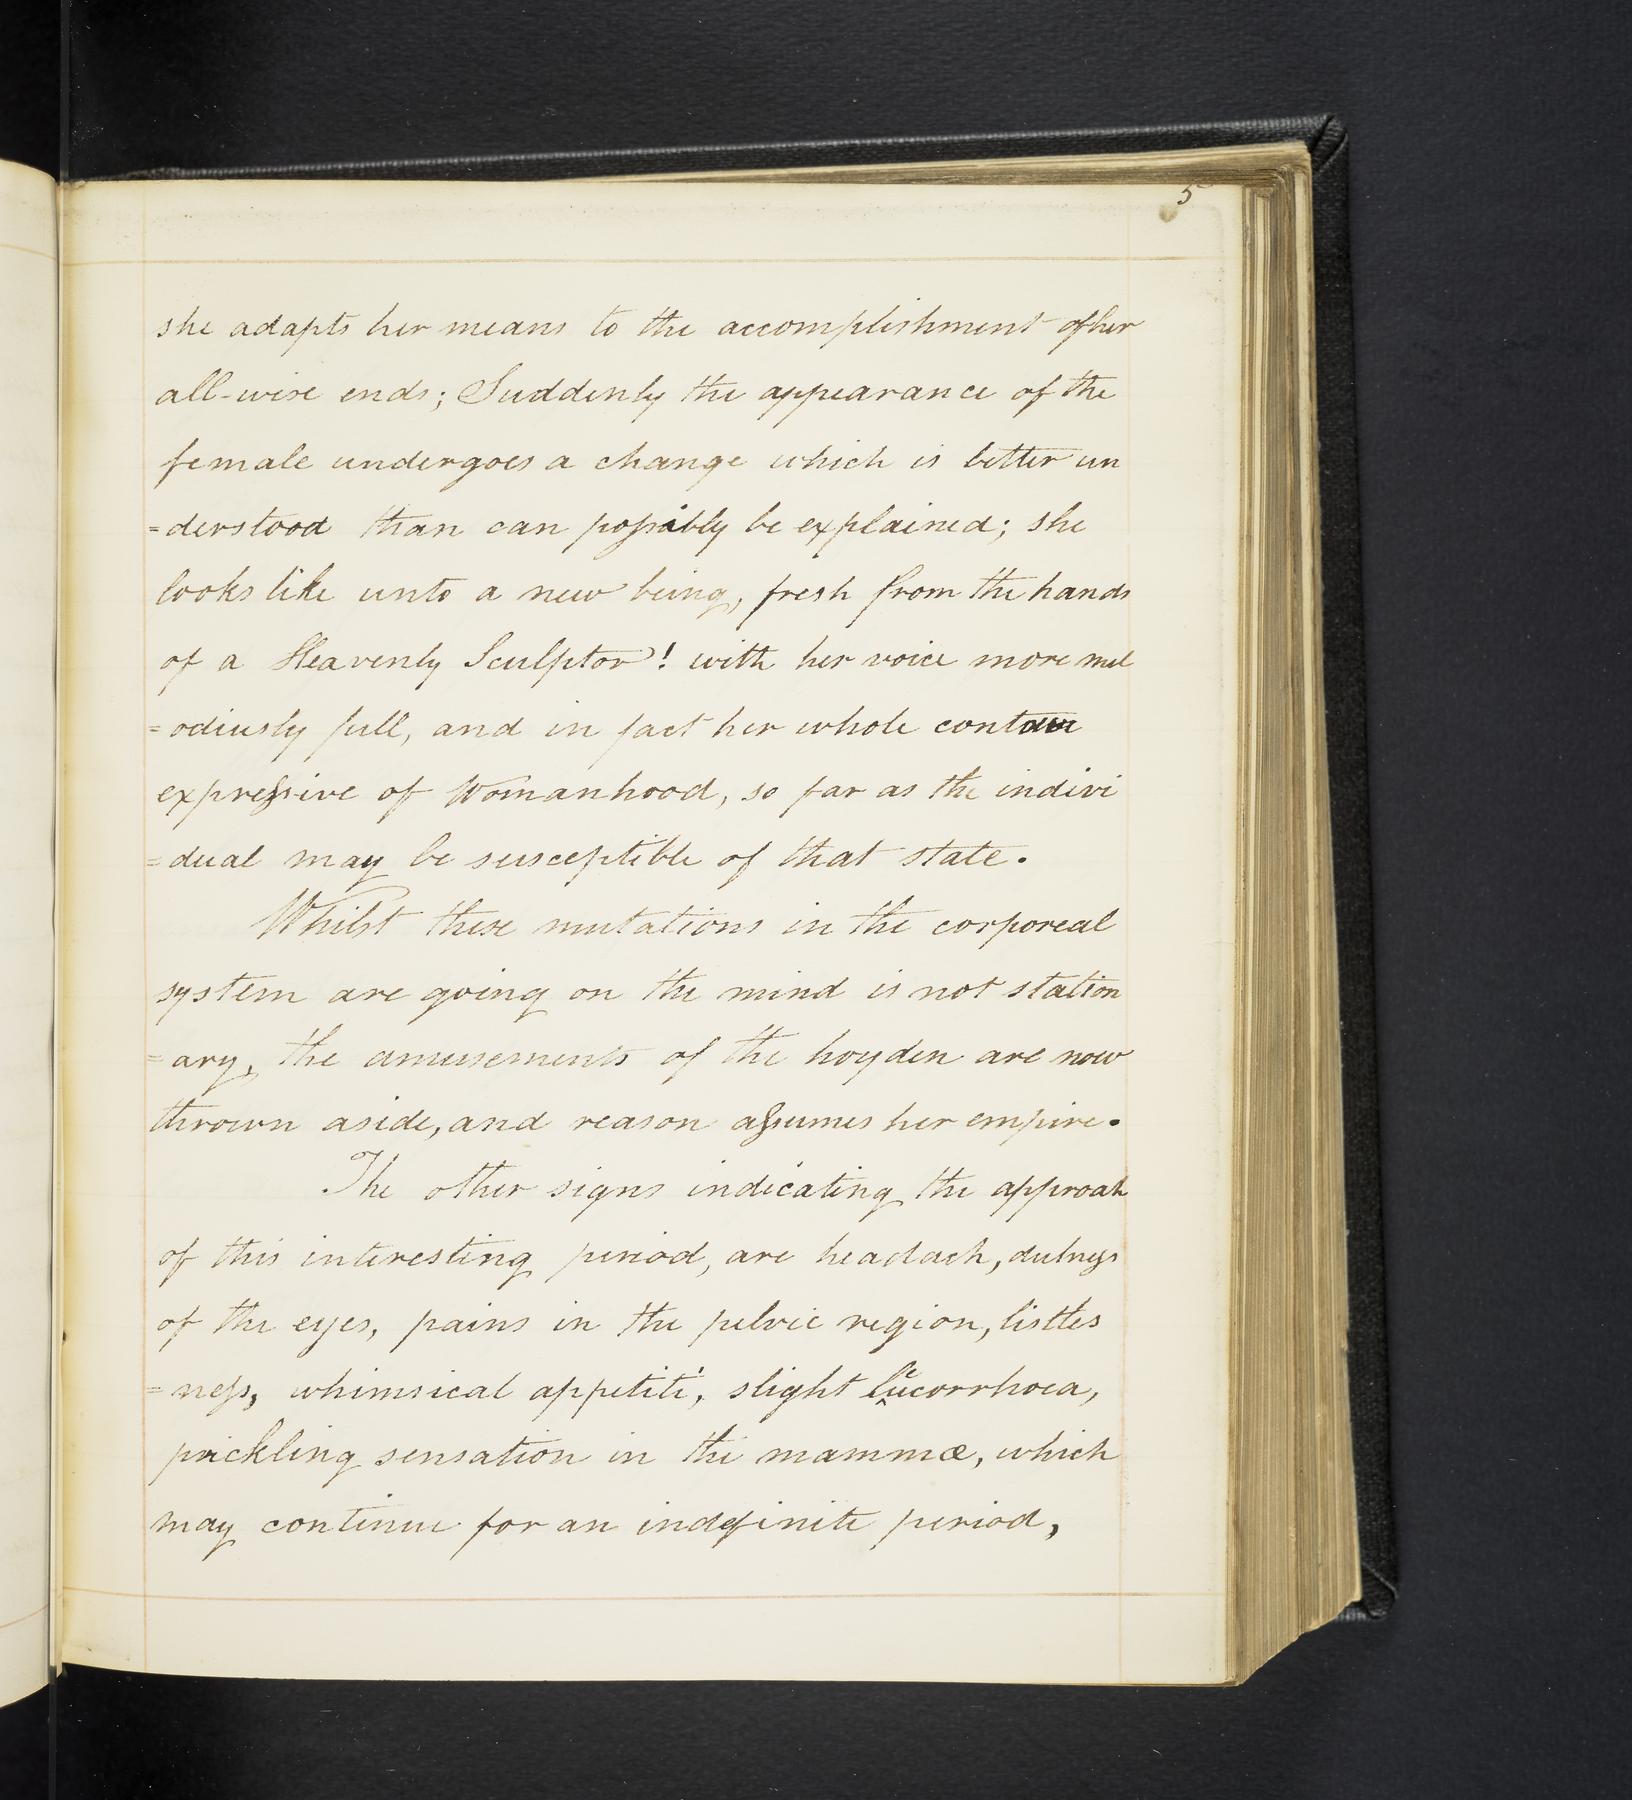 5
she adapts her means to the accomplishment of her
all-wise ends; Suddenly the appearance of the
female undergoes a change which is better un
=derstood than can possibly be explained; she
looks like unto a new being, fresh from the hands
of a Heavenly Sculptor! with her voice more mel
=odiusly full, and in fact her whole contour
expressive of Womanhood, so far as the indivi
=dual may be susceptible of that state.
Whilst these mutations in the corporeal
system are going on the mind is not station
=ary, the amusements of the hoyden are now
thrown aside, and reason assumes her empire.
The other signs indicating the approah
of this interesting period, are headach, dulness
of the eyes, pains in the pelvic region, listles
=ness, whimsical appetite, slight leucorrhoea,
prickling sensation in the mammæ, which
may continue for an indefinite period,